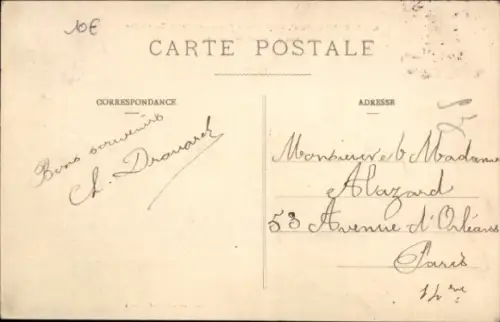 10€
CARTE POSTALE
CORRESPONDANCE
ADRESSE
Bons souvenirs
Ch. Drouard
Monsieur & Madame
Alazard
53 Avenue d'Orléans
Paris
14me